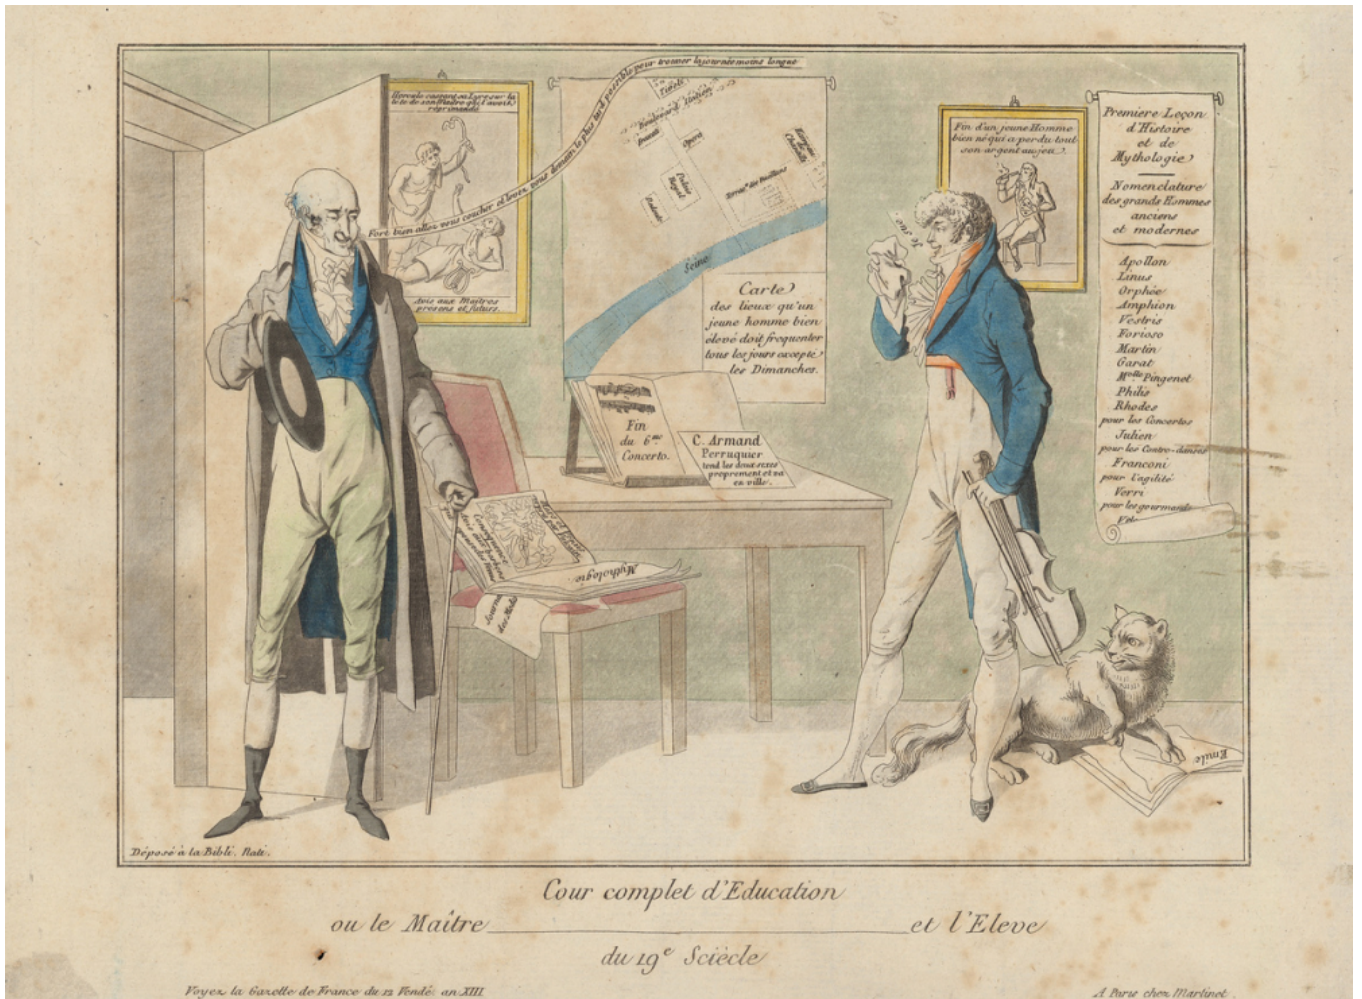 Hercule cassant sa Lyre sur la
tete de son Maître qui l'avoit
réprimandé.
Avis aux Maîtres
présens et futurs.
Fort bien allez vous coucher et levez vous demain le plus tard possible pour trouver la journée moins longue
Tivoli
Boulevard Italien
Frascati
Opera
Palais
Royal
Terrasse des Feuillans
Seine
Carte
des lieux qu'un
jeune homme bien
élevé doit frequenter
tous les jours excepté
les Dimanches.
Fin
du 6.me
Concerto.
C. Armand
Perruquier
tond les deux sexes
proprement et va
en ville.
Mythologie
Journal
des Modes
je sue.
Fin d'un jeune Homme
bien né qui a perdu tout
son argent au jeu.
Premiere Leçon
d'Histoire
et de
Mythologie
Nomenclature
des grands Hommes
anciens
et modernes
Apollon
Linus
Orphée
Amphion
Vestris
Forioso
Martin
Garat
Melle Pingenet
Philis
Rhodes
pour les Concertos
Julien
pour les Contre-danses
Franconi
pour l'agilité
Verri
pour les gourmands
Emile
Déposé à la Bibli. Nati.
Cour complet d'Education
ou le Maître et l'Eleve
du 19e Sciècle
Voyez la Gazette de France du 12 Vendé. an XIII
A Paris chez Martinet